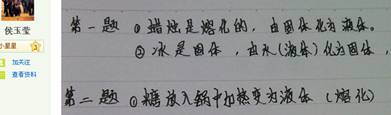 侯玉莹
小星星 3
加关注
查看资料
第一题 ①蜡烛是熔化的，由固体化为液体。
②冰是固体，由水(液体)化为固体，
第二题 ①糖放入锅中加热变为液体（熔化）